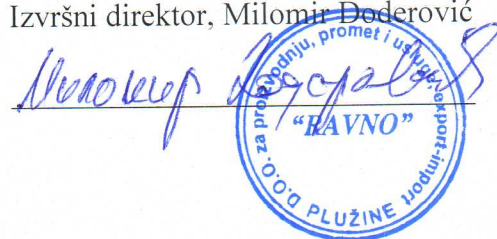 Izvršni direktor, Milomir Doderović
D.O.O. za proizvodnju, promet i usluge, export-import
"RAVNO"
PLUŽINE